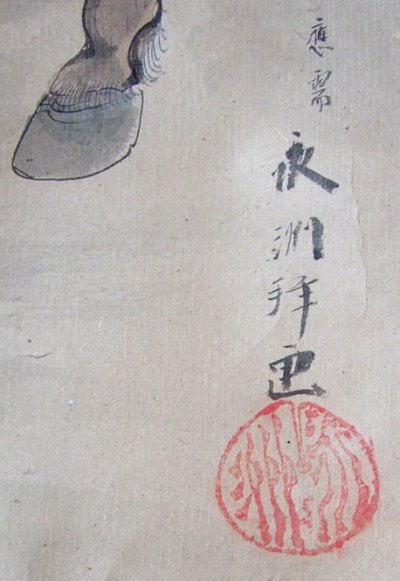 應需
永洲拝画